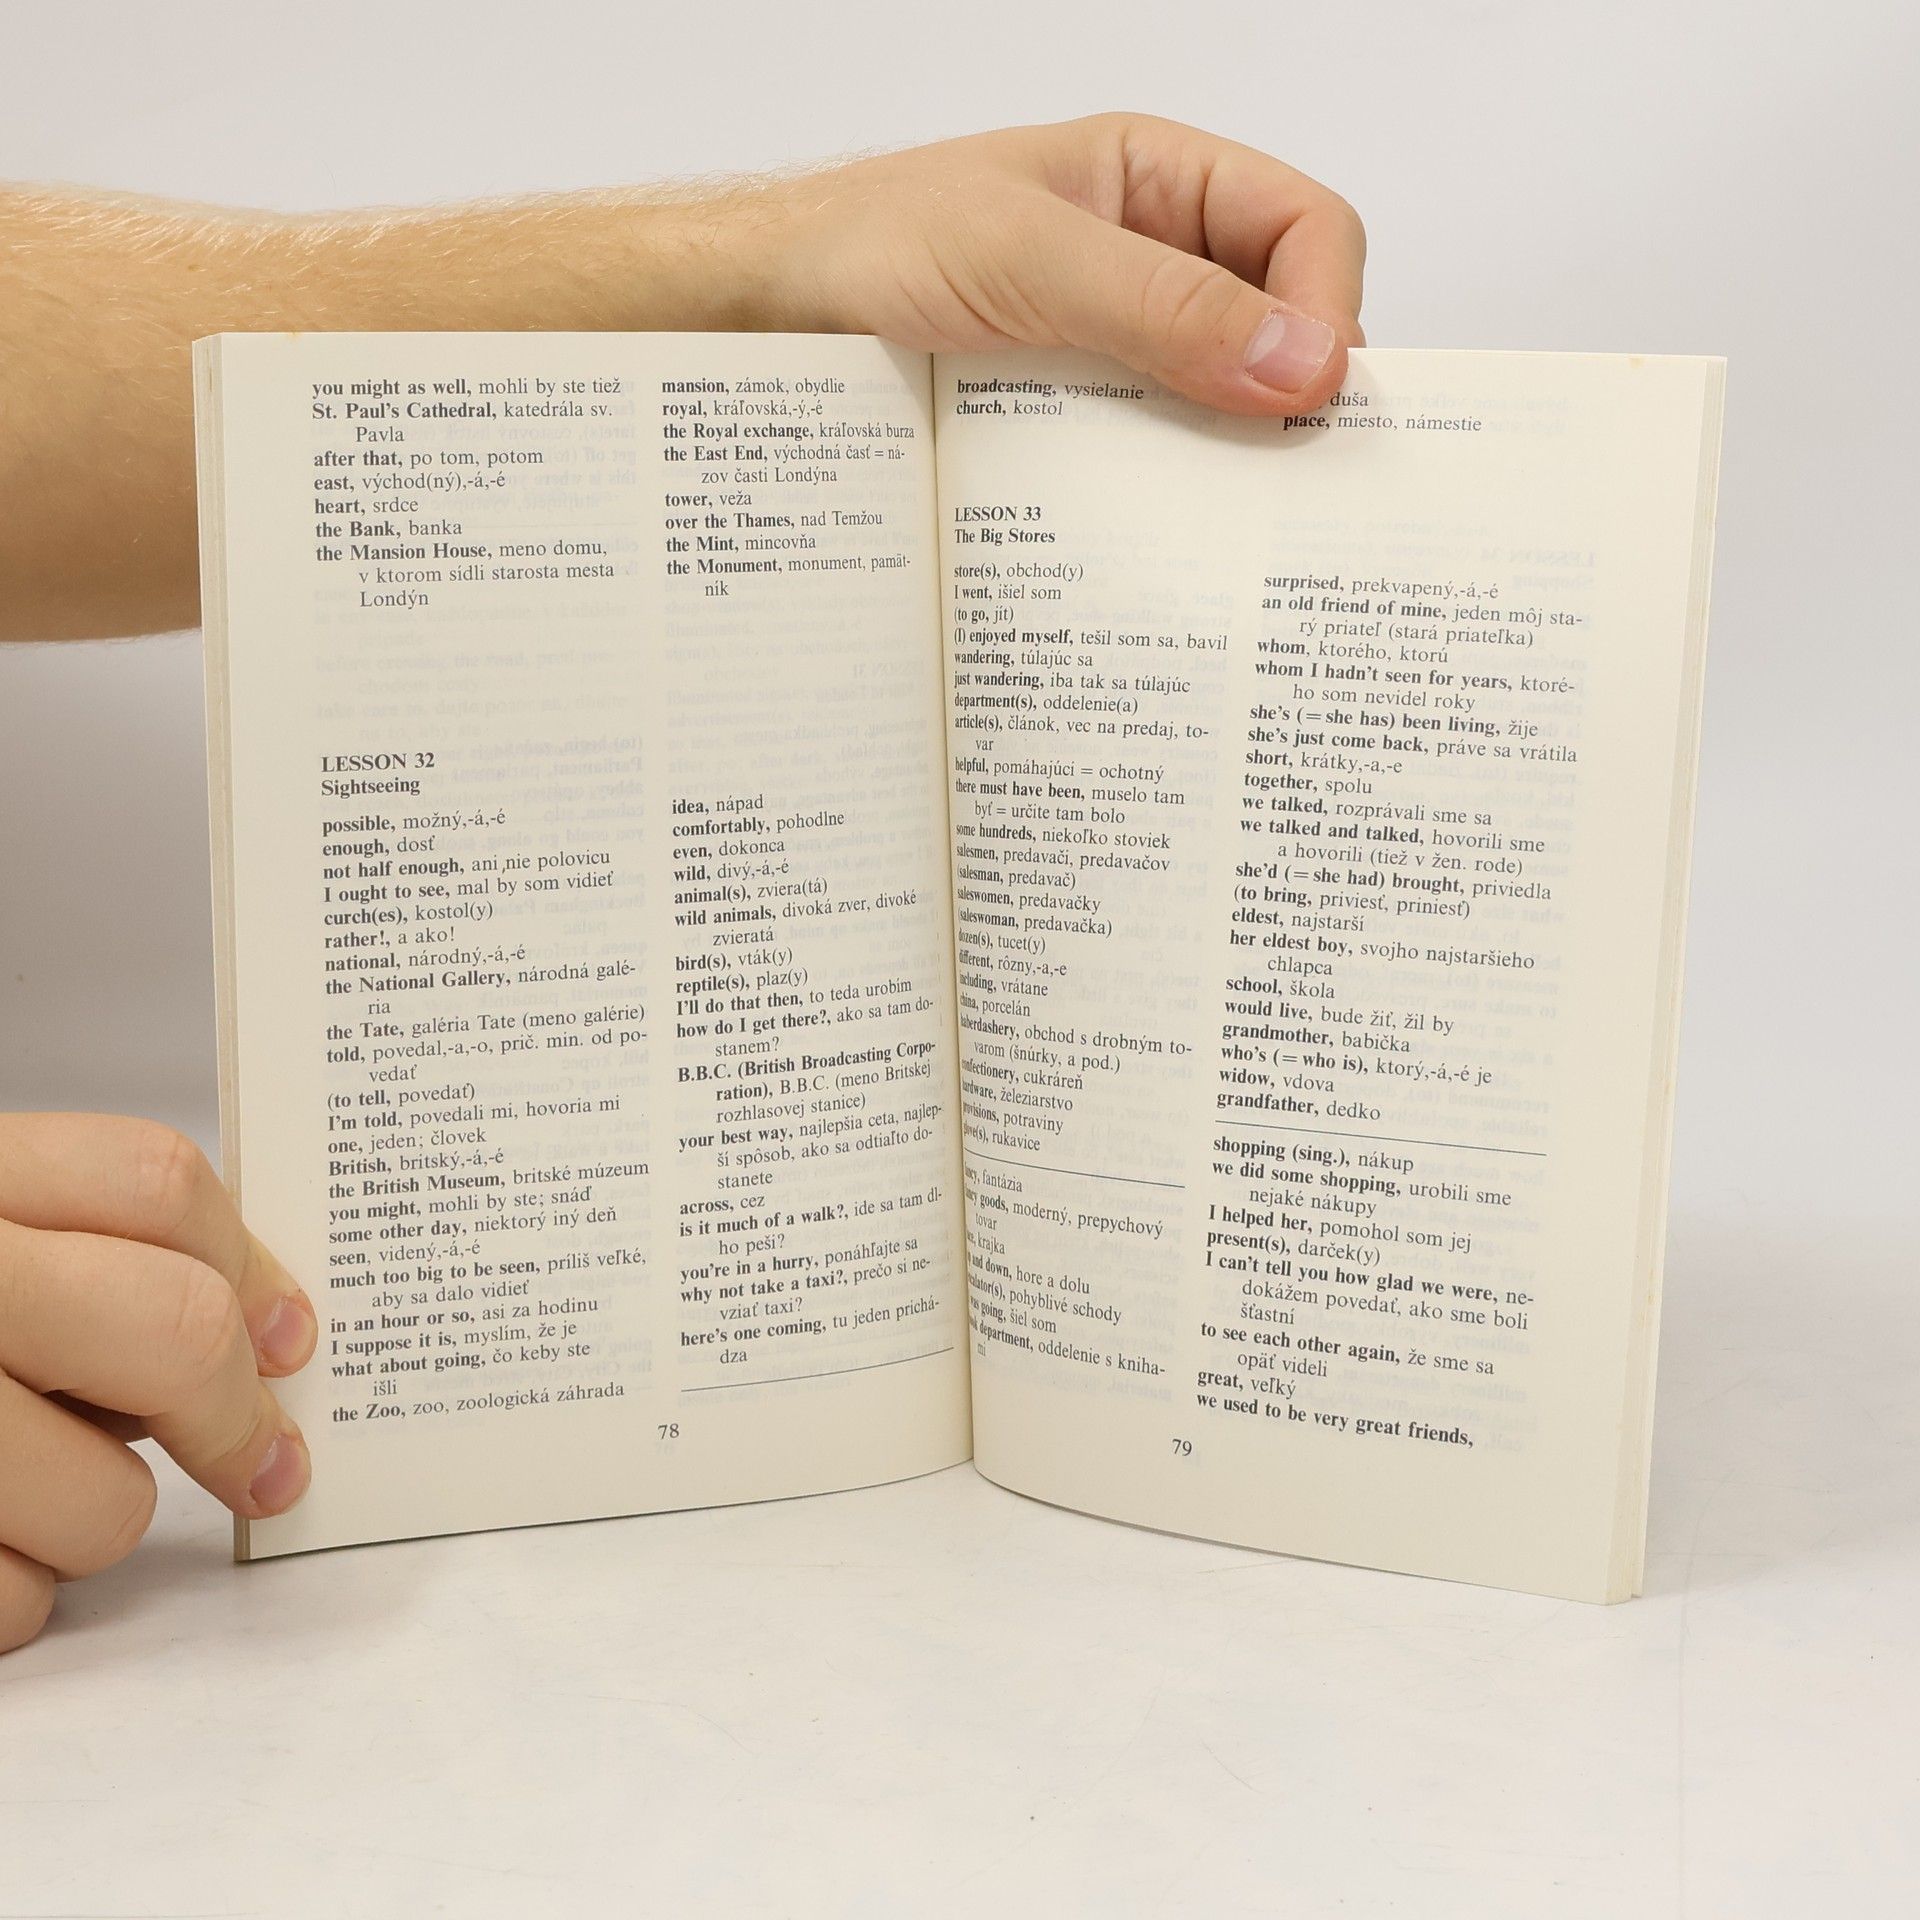 you might as well, mohli by ste tiež
St. Paul's Cathedral, katedrála sv.
Pavla
after that, po tom, potom
east, východ(ný),-á,-é
heart, srdce
the Bank, banka
the Mansion House, meno domu,
v ktorom sídli starosta mesta
Londýn
mansion, zámok, obydlie
royal, kráľovská,-ý,-é
the Royal exchange, kráľovská burza
the East End, východná časť = ná-
zov časti Londýna
tower, veža
over the Thames, nad Temžou
the Mint, mincovňa
the Monument, monument, pamät-
ník
LESSON 32
Sightseeing
possible, možný,-á,-é
enough, dosť
not half enough, ani nie polovicu
I ought to see, mal by som vidieť
curch(es), kostol(y)
rather!, a ako!
national, národný,-á,-é
the National Gallery, národná galé-
ria
the Tate, galéria Tate (meno galérie)
told, povedal,-a,-o, prič. min. od po-
vedať
(to tell, povedať)
I'm told, povedali mi, hovoria mi
one, jeden; človek
British, britský,-á,-é
the British Museum, britské múzeum
you might, mohli by ste; snáď
some other day, niektorý iný deň
seen, videný,-á,-é
much too big to be seen, príliš veľké,
aby sa dalo vidieť
in an hour or so, asi za hodinu
I suppose it is, myslím, že je
what about going, čo keby ste
išli
the Zoo, zoo, zoologická záhrada
idea, nápad
comfortably, pohodlne
even, dokonca
wild, divý,-á,-é
animal(s), zviera(tá)
wild animals, divoká zver, divoké
zvieratá
bird(s), vták(y)
reptile(s), plaz(y)
I'll do that then, to teda urobím
how do I get there?, ako sa tam do-
stanem?
B.B.C. (British Broadcasting Corpo-
ration), B.B.C. (meno Britskej
rozhlasovej stanice)
your best way, najlepšia ceta, najlep-
ší spôsob, ako sa odtiaľto do-
stanete
across, cez
is it much of a walk?, ide sa tam dl-
ho peši?
you're in a hurry, ponáhľajte sa
why not take a taxi?, prečo si ne-
vziať taxi?
here's one coming, tu jeden prichá-
dza
78
broadcasting, vysielanie
church, kostol
duša
place, miesto, námestie
LESSON 33
The Big Stores
store(s), obchod(y)
I went, išiel som
(to go, jít)
(I) enjoyed myself, tešil som sa, bavil
wandering, túlajúc sa
just wandering, iba tak sa túlajúc
department(s), oddelenie(a)
article(s), článok, vec na predaj, to-
var
helpful, pomáhajúci = ochotný
there must have been, muselo tam
byť = určite tam bolo
some hundreds, niekoľko stoviek
salesmen, predavači, predavačov
(salesman, predavač)
saleswomen, predavačky
(saleswoman, predavačka)
dozen(s), tucet(y)
different, rôzny,-a,-e
including, vrátane
china, porcelán
haberdashery, obchod s drobným to-
varom (šnúrky, a pod.)
confectionery, cukráreň
hardware, železiarstvo
provisions, potraviny
glove(s), rukavice
fantázia
goods, moderný, prepychový
tovar
krajka
and down, hore a dolu
pohyblivé schody
was going, šiel som
department, oddelenie s kniha-
mi
surprised, prekvapený,-á,-é
an old friend of mine, jeden môj sta-
rý priateľ (stará priateľka)
whom, ktorého, ktorú
whom I hadn't seen for years, ktoré-
ho som nevidel roky
she's (= she has) been living, žije
she's just come back, práve sa vrátila
short, krátky,-a,-e
together, spolu
we talked, rozprávali sme sa
we talked and talked, hovorili sme
a hovorili (tiež v žen. rode)
she'd (= she had) brought, priviedla
(to bring, priviesť, priniesť)
eldest, najstarší
her eldest boy, svojho najstaršieho
chlapca
school, škola
would live, bude žiť, žil by
grandmother, babička
who's (= who is), ktorý,-á,-é je
widow, vdova
grandfather, dedko
shopping (sing.), nákup
we did some shopping, urobili sme
nejaké nákupy
I helped her, pomohol som jej
present(s), darček(y)
I can't tell you how glad we were, ne-
dokážem povedať, ako sme boli
šťastní
to see each other again, že sme sa
opäť videli
great, veľký
we used to be very great friends,
79